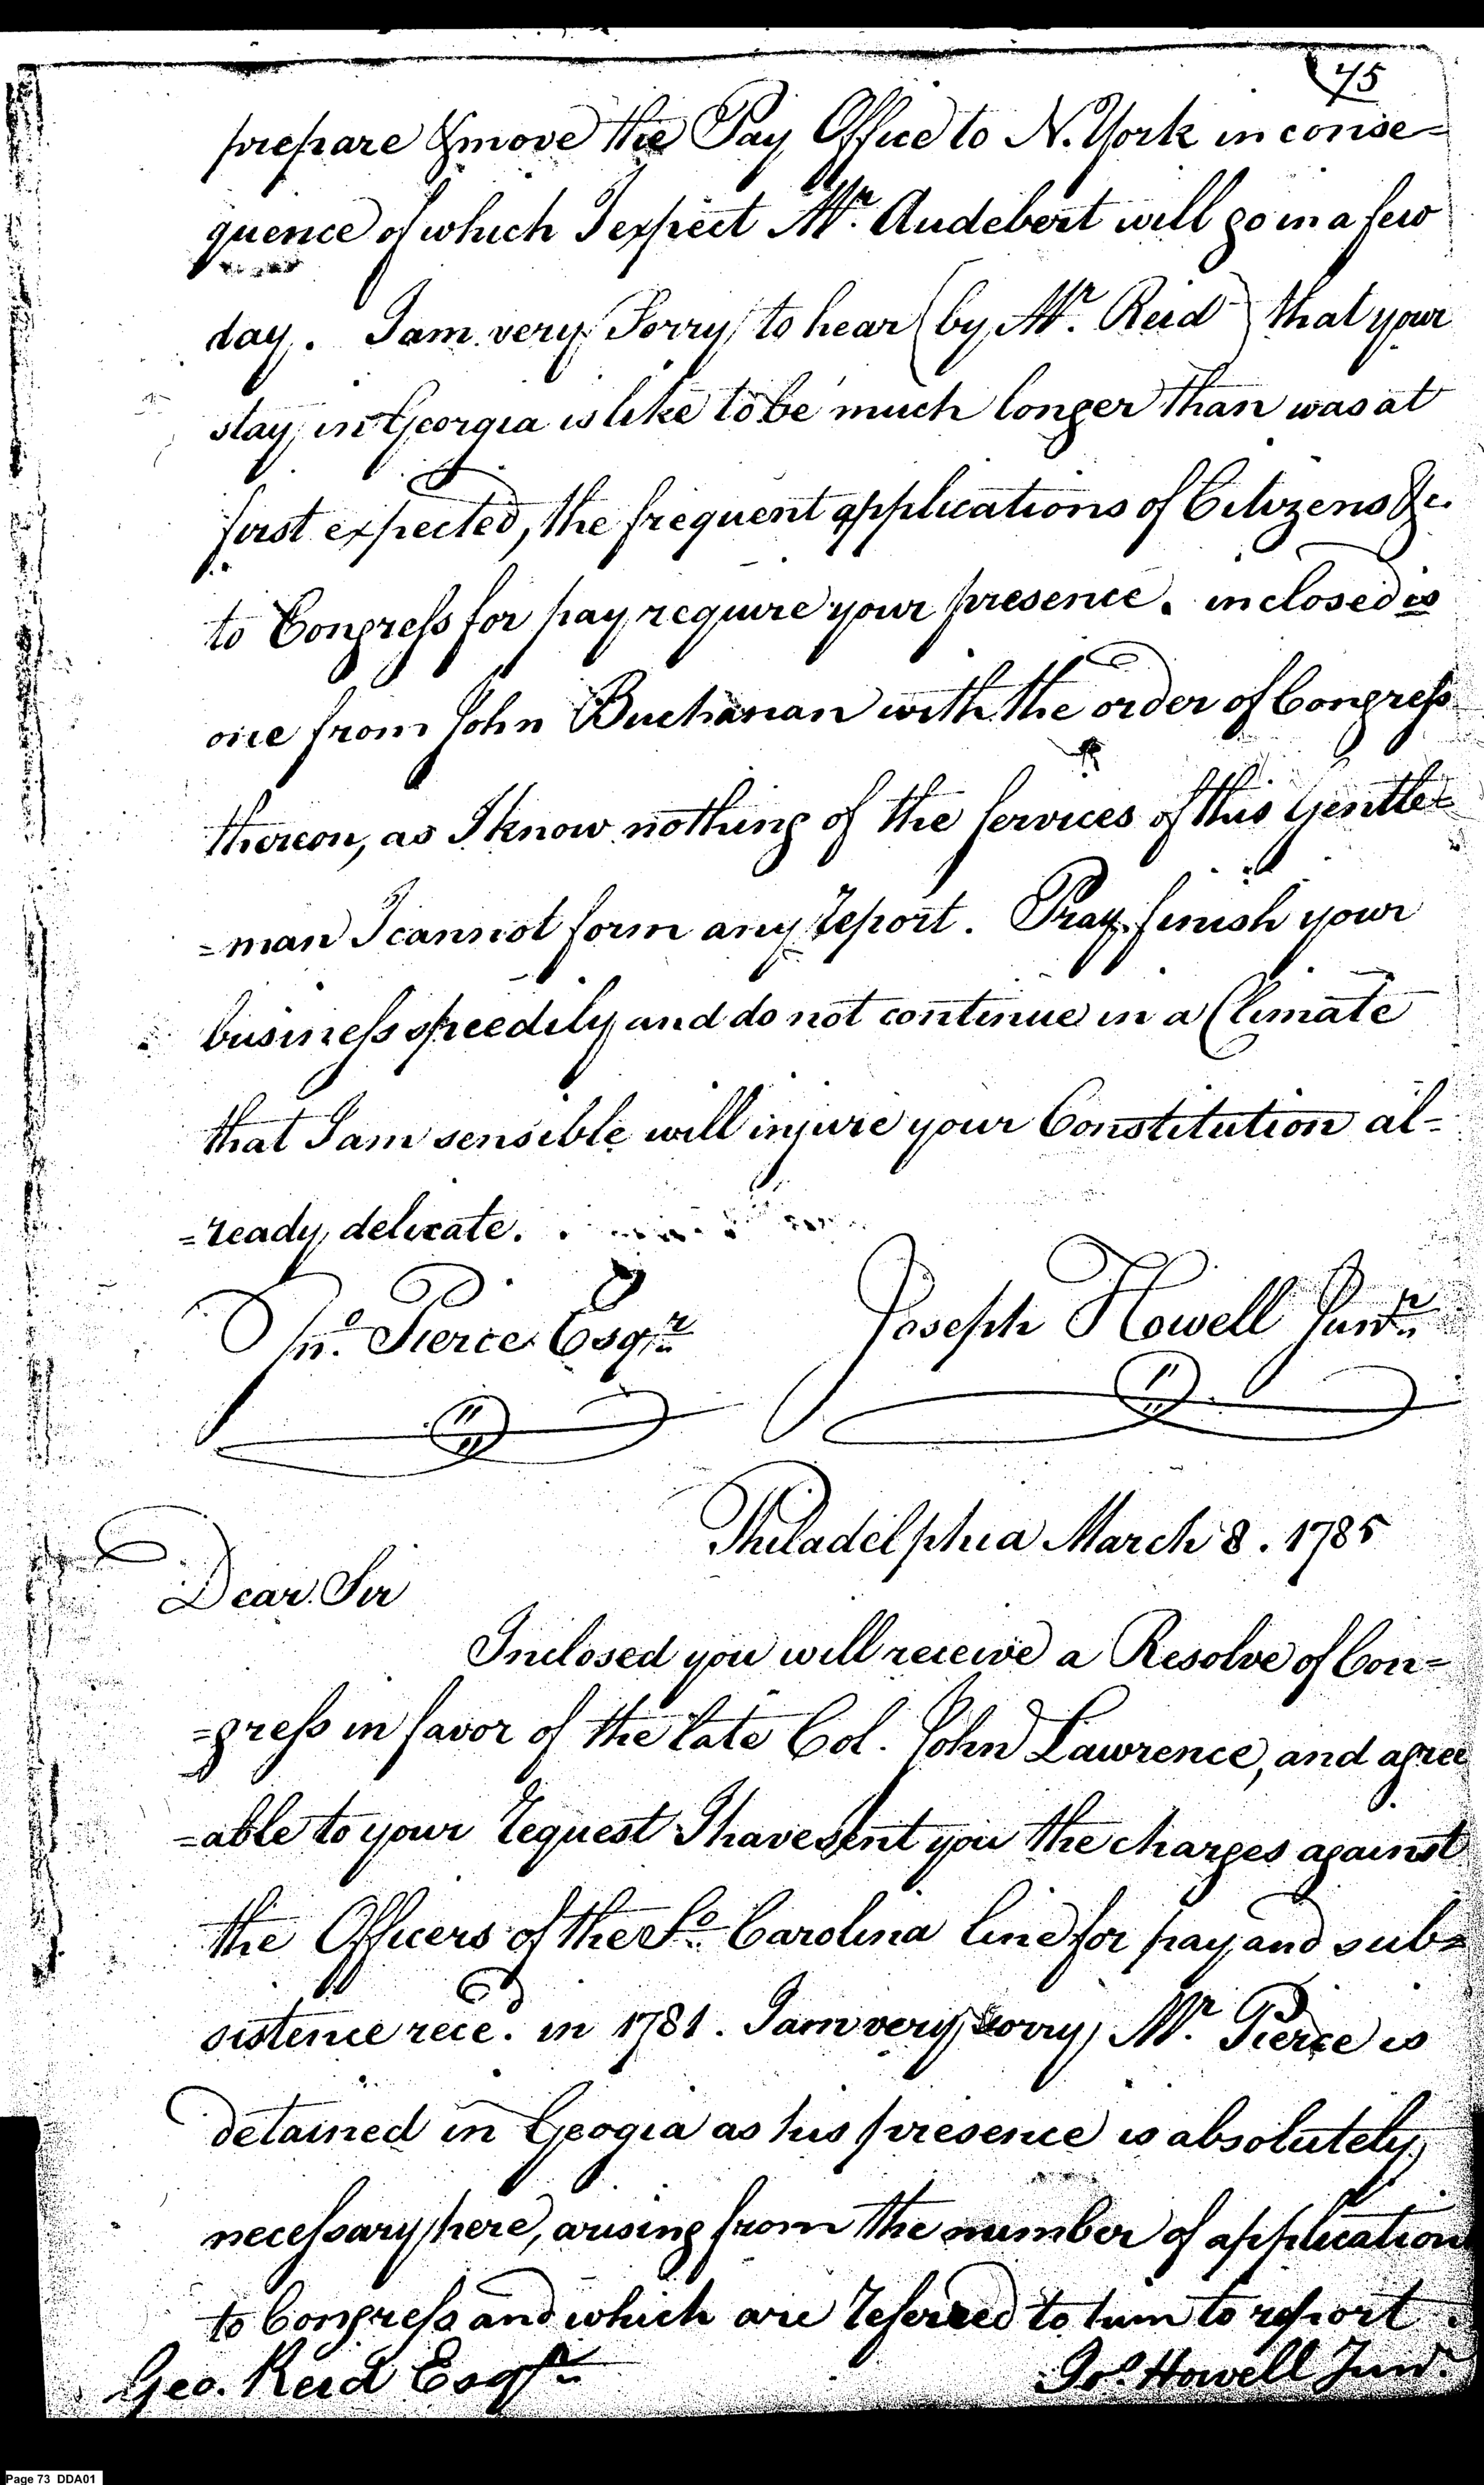 75
prepare & move the Pay Office to N. York in conse=
quence of which I expect Mr. Audebert will go in a few
day. I am very Sorry to hear (by Mr. Reid) that your
stay in Georgia is like to be much longer than was at
first expected, the frequent applications of Citizens &c.
to Congress for pay require your presence. inclosed is
one from John Buchanan with the order of Congress
thereon, as I know nothing of the Services of this Gentle=
=man I cannot form any report. Pray finish your
business speedily and do not continue in a Climate
that I am sensible will injure your Constitution al=
=ready delicate.
Jno. Pierce Esqr. Joseph Howell Junr.
Philadelphia March 8. 1785
Dear Sir
Inclosed you will receive a Resolve of Con=
=gress in favor of the late Col. John Lawrence, and agree
=able to your request I have sent you the charges against
the Officers of the So. Carolina line for pay and sub=
sistence rece. in 1781. I am very sorry Mr. Pierce is
detained in Geogia as his presence is absolutely
necessary here, arising from the number of application
to Congress and which are referred to him to report.
Geo. Reid Esqr. Jos. Howell Junr.
Page 73 DDA01